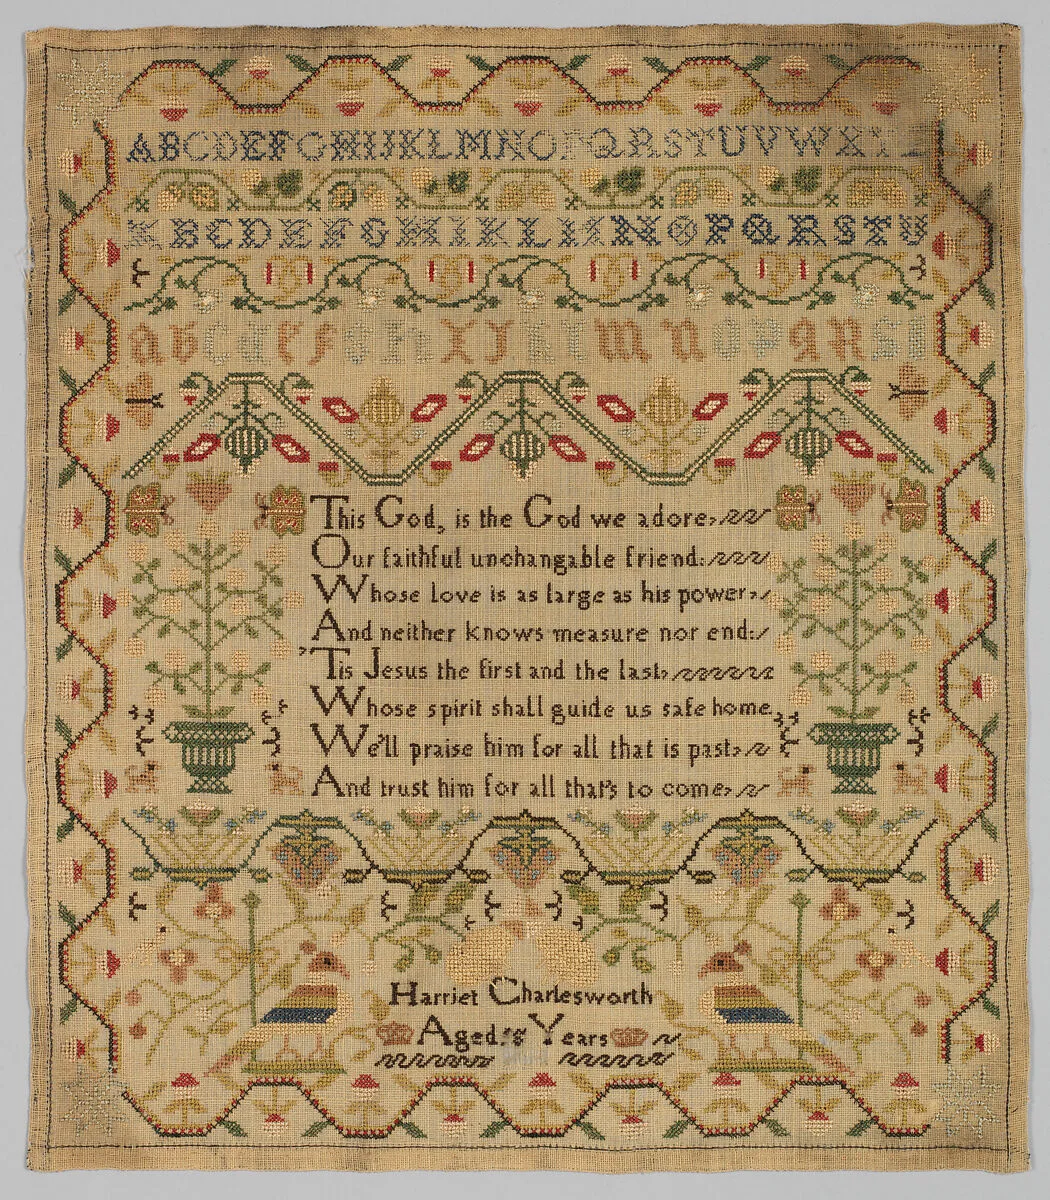 ABCDEFGHIJKLMNOPQRSTUVWXYZ
ABCDEFGHIKLMNOPQRSTU
This God, is the God we adore,
Our faithful unchangable friend:
Whose love is as large as his power,
And neither knows measure nor end:
'Tis Jesus the first and the last,
Whose spirit shall guide us safe home
We'll praise him for all that is past,
And trust him for all that's to come,
Harriet Charlesworth
Aged 8 Years